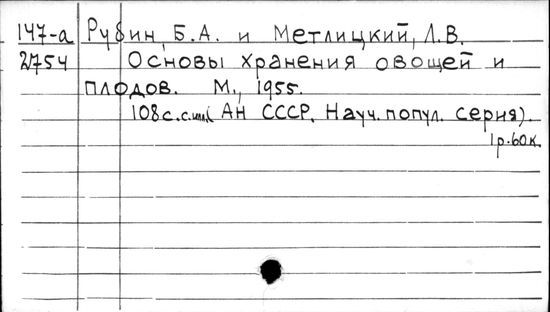 147-а Рубин, Б.А. и Метлицкий, Л.В.
2754 Основы хранения овощей и
плодов. М., 1955.
108с.с.илл. (АН СССР. Науч. попул. серия).
1р.60к.